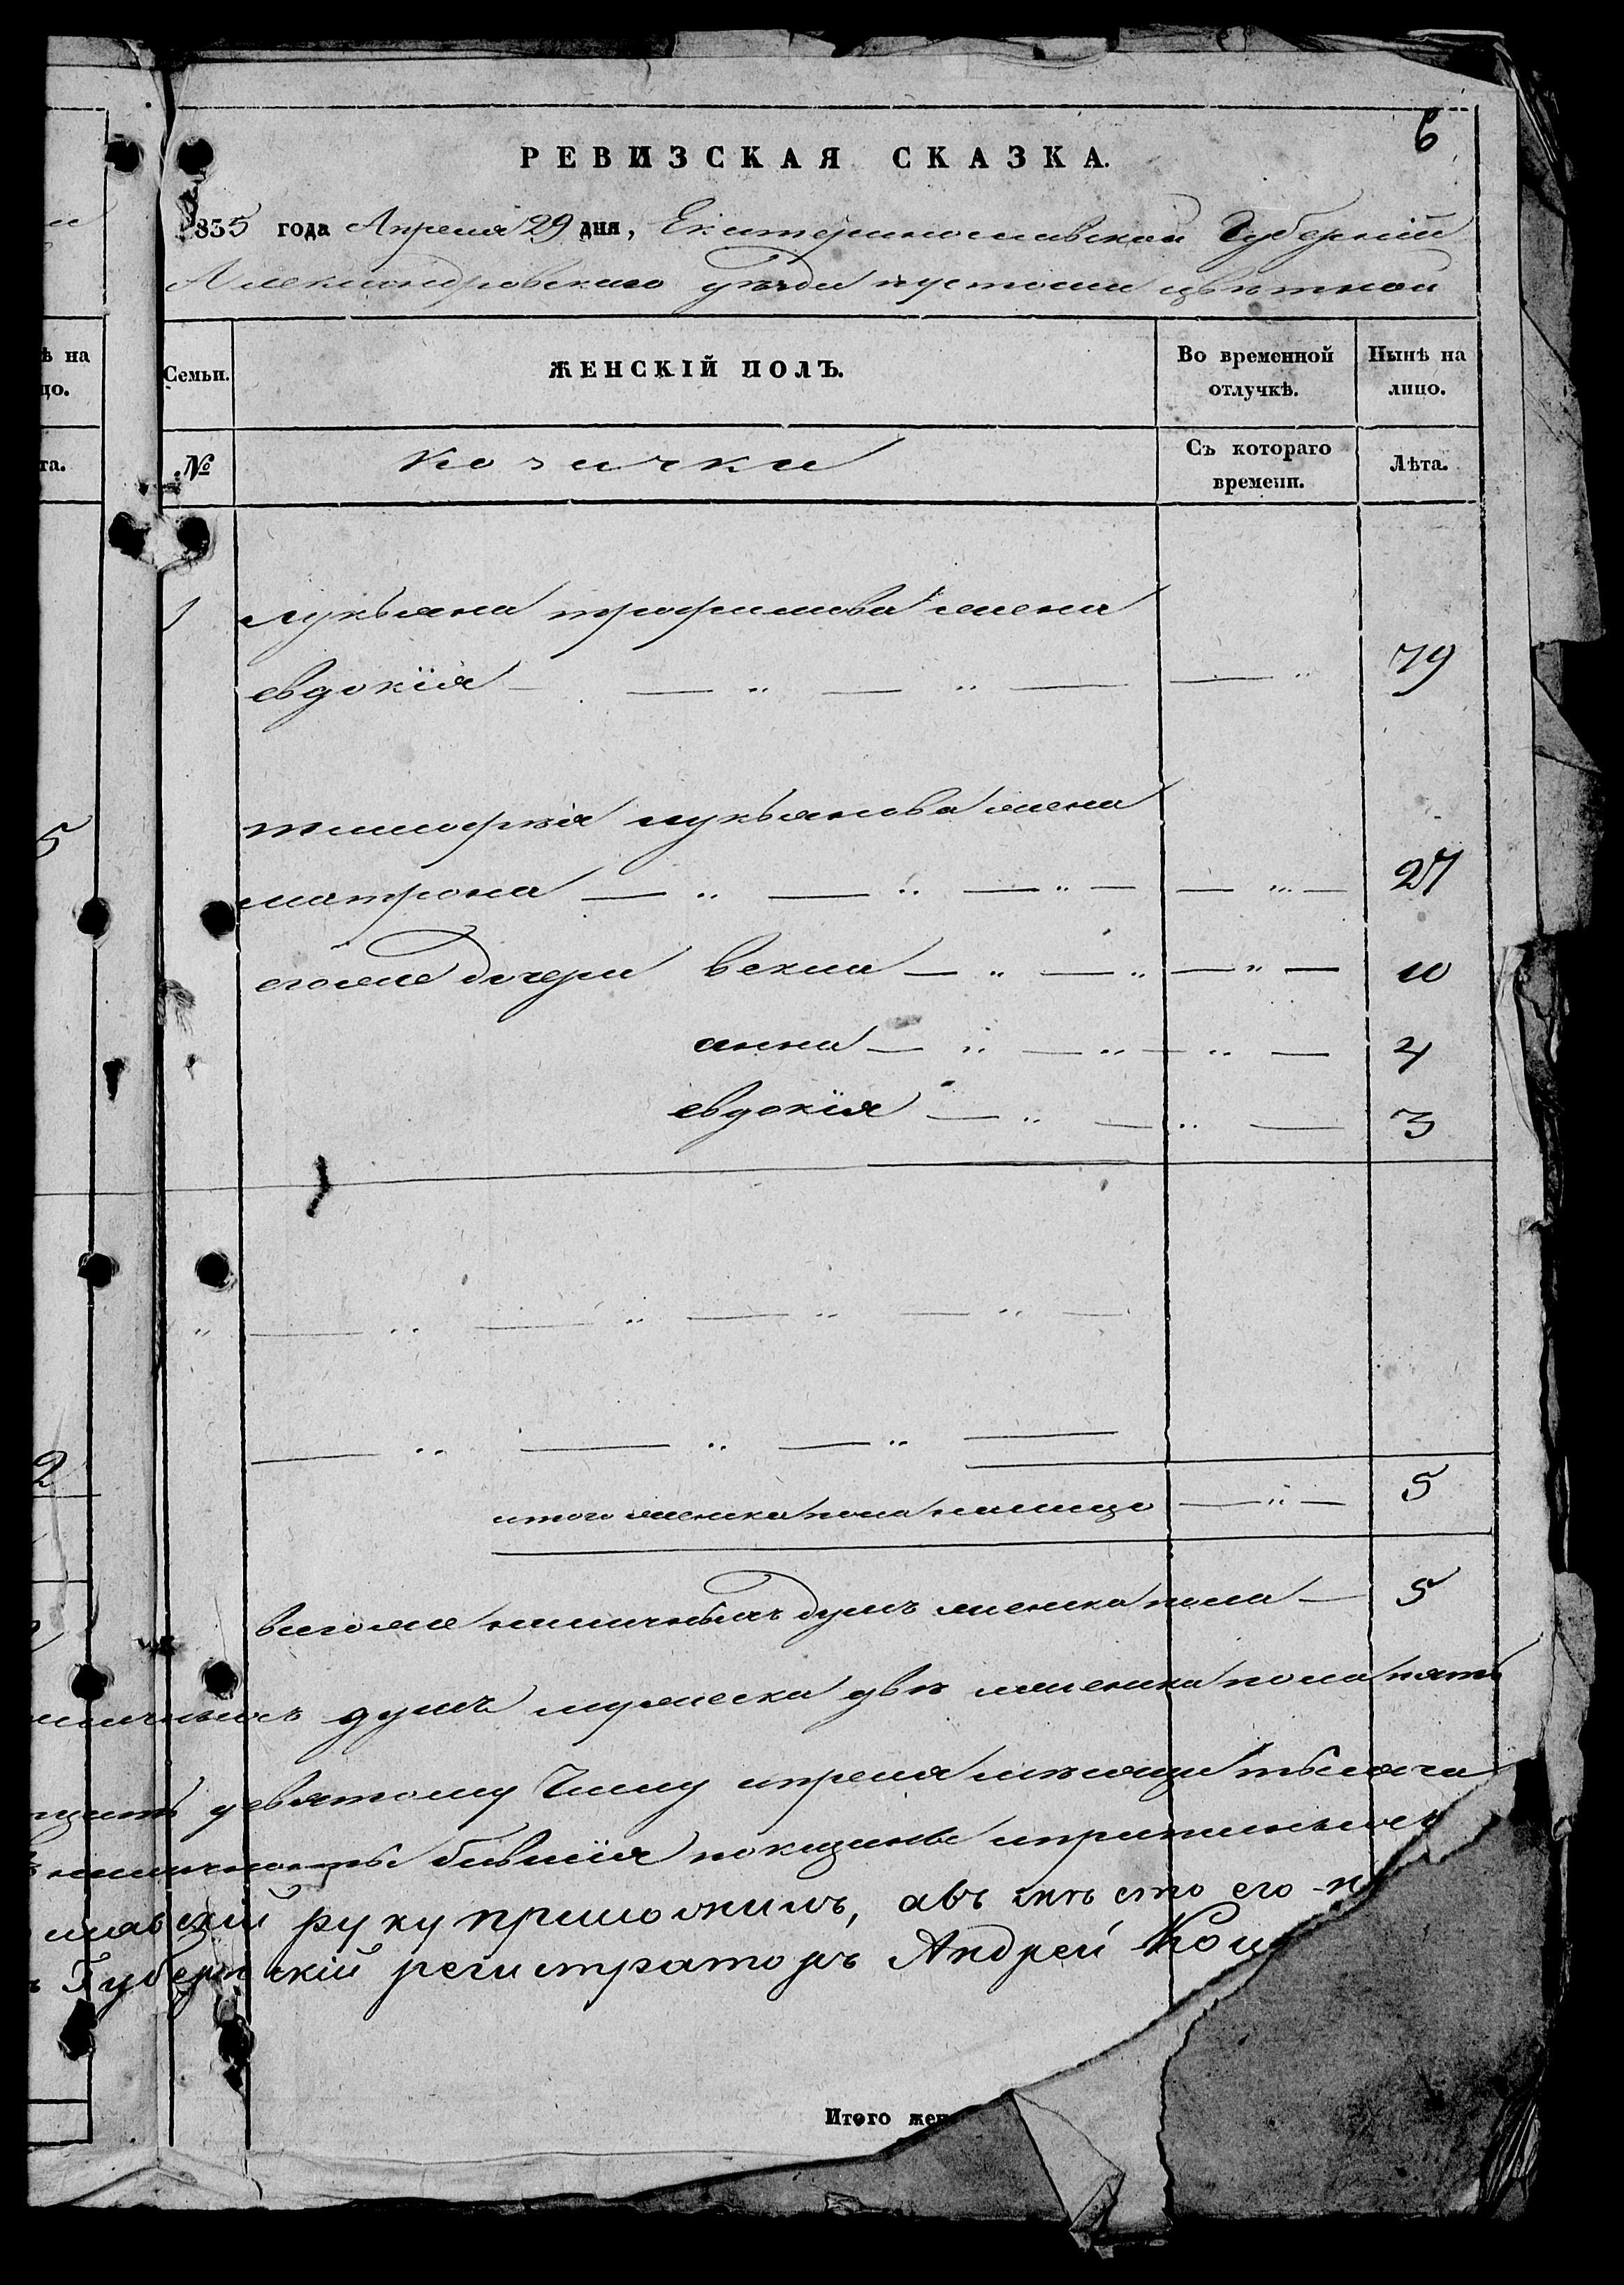 6
РЕВИЗСКАЯ СКАЗКА.
1835 года Апреля 29 дня, Екатеринославской Губернии
Александровскаго уезда пустоши цветной
ѣ на
цо.
Семьи.
ЖЕНСКІЙ ПОЛЪ.
Во временной
отлучкѣ.
Нынѣ на
лицо.
та.
№
козачки
Съ котораго
времени.
Лѣта.
1 лукьяна трофимова жена
евдокія 79
тимофѣя лукьянова жена
5
матрона 27
егоже дочери векла 10
анна 4
евдокія 3
2
итого женска пола налицо 5
всегоже наличныхъ душъ женска пола 5
наличныхъ душъ мужеска двѣ женска пола пять
девятому Числу апреля месяца тысяча
бывшія
славскій руку приложилъ, авъ место его
Губернскій регистраторъ Андрей
Итого жен